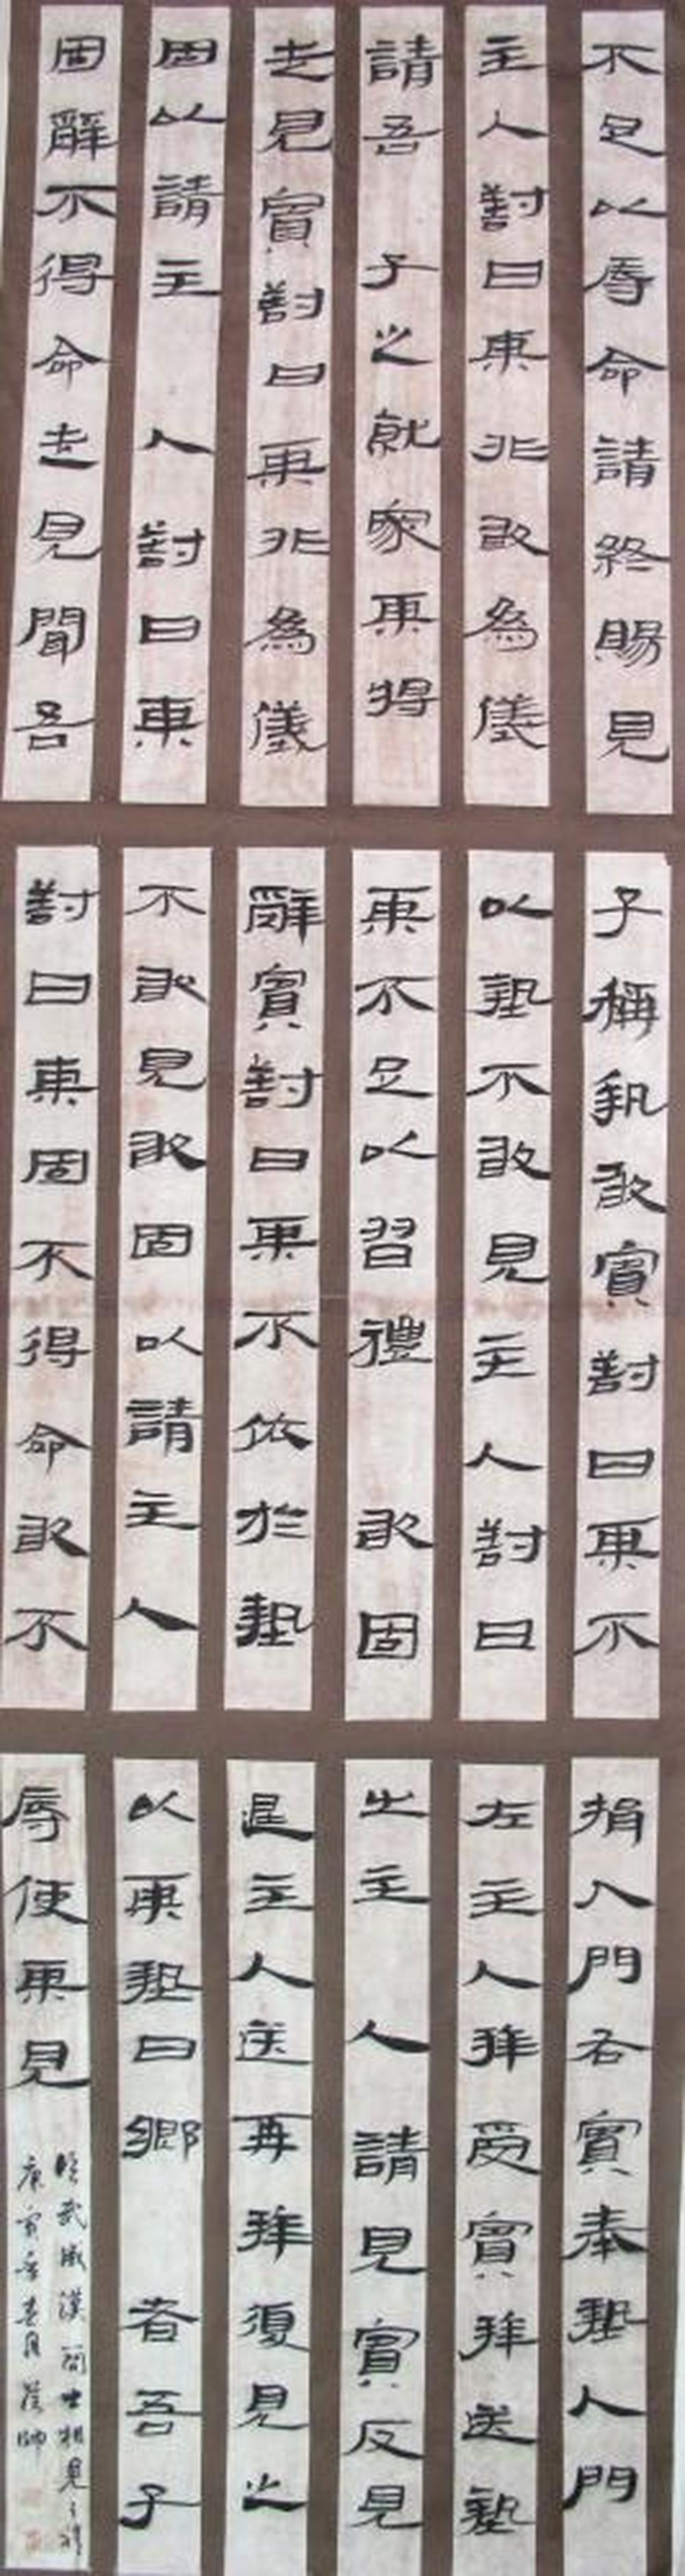 不足以辱命請終賜見
主人對曰某非敢為儀
請吾子之就家某將
走見賓對曰某非為儀
固以請主人對曰某
固辭不得命走見聞吾
子稱執敢賓對曰某不
以墊不敢見主人對曰
某不足以習禮敢固
辭賓對曰某不依於墊
不敢見敢固以請主人
對曰某固不得命敢不
揖入門右賓奉墊入門
左主人拜受賓拜送墊
出主人請見賓反見
退主人送再拜復見之
以其墊曰鄉者吾子
辱使某見
臨武威漢簡士相見之禮
庚寅春月